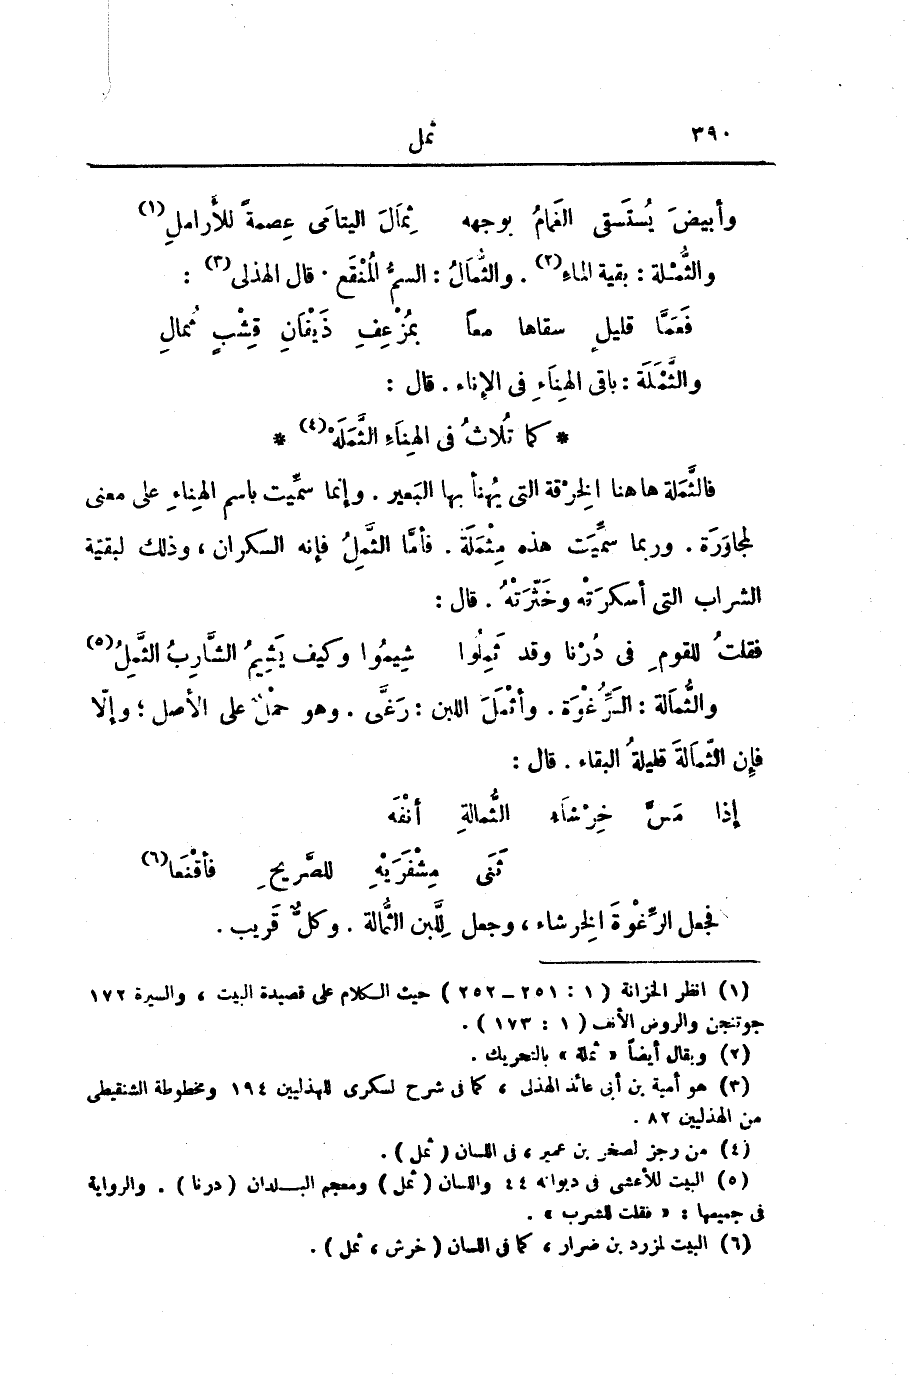 ٣٩٠ ثمل
وأبيضَ يُستَسقى الغَمامُ بوجهه ثِمالَ اليتامَى عِصمةً للأراملِ(١)
والثُّمْلة : بقية الماء(٢) . والثُّمَالُ : السمُّ المُنْقَع . قال الهذلى(٣) :
فَعَمَّا قليلٍ سقاها معاً بمُزْعِفِ ذَيْفَانِ قِشْبٍ ثُمالِ
والثَّمَلَة : باقى الهِنَاءِ فى الإناء . قال :
* كما تُلاثُ فى الهِنَاءِ الثَّمَلَهْ(٤) *
فالثَّمَلة هاهنا الخِرْقة التى يُهنأ بها البَعير . وإنما سمِّيت باسم الهِناءِ على معنى
المجاوَرَة . وربما سمِّيَت هذه مِثْمَلَة . فأمَّا الثَّمِلُ فإنه السكران ، وذلك لبقيّة
الشراب التى أسكرَتْه وخَثّرَتْهُ . قال :
فقلتُ للقومِ فى دُرْنا وقد ثَمِلُوا شِيمُوا وكيف يَشِيمُ الشَّارِبُ الثَّمِلُ(٥)
والثُّمَالة : الرُّغْوَة . وأثْمَلَ اللبن : رَغَّى . وهو حَمْلٌ على الأصل ؛ وإلّا
فإن الثّمَالةَ قليلةُ البقاء . قال :
إذا مَسَّ خِرْشاء الثُّمالةِ أنْفَه
ثَنَى مِشْفَرَيْهِ للصَّريحِ فأقْنَعا(٦)
فجعل الرِّغْوةَ الخِرشاء ، وجعل لِلَّبن الثُّمالة . وكلٌّ قَريب .
(١) انظر الخزانة ( ١ : ٢٥١ – ٢٥٢ ) حيث الكلام على قصيدة البيت ، والسيرة ١٧٢
جوتنجن والروض الأنف ( ١ : ١٧٣ ) .
(٢) ويقال أيضاً « ثملة » بالتحريك .
(٣) هو أمية بن أبى عائذ الهذلى ، كما فى شرح لسكرى للهذليين ١٩٤ ومخطوطة الشنقيطى
من الهذليين ٨٢ .
(٤) من رجز لصخر بن عمير ، فى اللسان ( ثمل ) .
(٥) البيت للأعشى فى ديوانه ٤٤ واللسان ( ثمل ) ومعجم البلدان ( درنا ) . والرواية
فى جميعها : « فقلت للشرب » .
(٦) البيت لمزرد بن ضرار ، كما فى اللسان ( خرش ، ثمل ) .